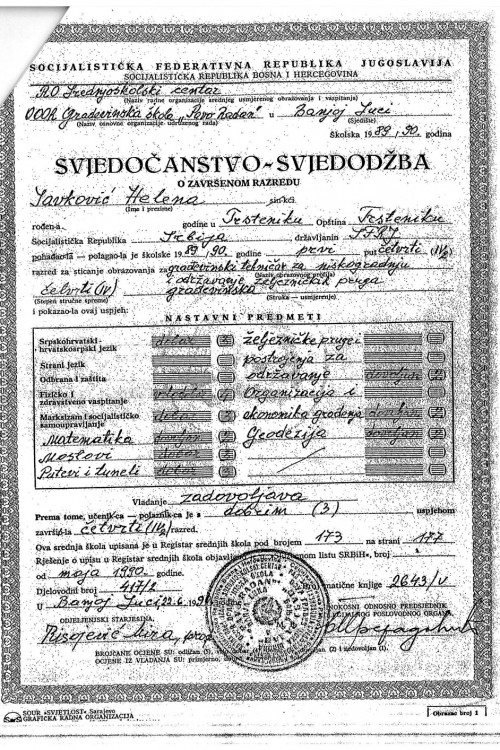 SOCIJALISTIČKA FEDERATIVNA REPUBLIKA JUGOSLAVIJA
SOCIJALISTIČKA REPUBLIKA BOSNA I HERCEGOVINA
R.O. Srednjoškolski centar
(Naziv radne organizacije srednjeg usmjerenog obrazovanja i vaspitanja)
OOUR Građevinska škola u Banjoj Luci
(Naziv osnovne organizacije udruženog rada) (Sjedište)
Školska 1989/90. godina
SVJEDOČANSTVO-SVJEDODŽBA
O ZAVRŠENOM RAZREDU
Savković Helena
(Ime i prezime)
rođen-a godine u Trsteniku Opština Trsteniku
Socijalistička Republika Srbija državljanin SFRJ
pohađao-la - polagao-la je školske 1989/90. godine prvi put četvrti (IV/2)
razred za sticanje obrazovanja za građevinski tehničar za niskogradnju
i održavanje željezničkih pruga
četvrti (IV) građevinska
(Stepen stručne spreme) (Struka — usmjerenje)
i pokazao-la ovaj uspjeh:
NASTAVNI PREDMETI
Srpskohrvatski - hrvatskosrpski jezik
željezničke pruge i
Strani jezik
postrojenja za
Odbrana i zaštita
održavanje dovoljan 2
Fizičko i zdravstveno vaspitanje
Organizacija i
Marksizam i socijalističko samoupravljanje
ekonomika građenja dovoljan 2
Matematika dovoljan 2
Geodezija dovoljan 2
Mostovi
Putevi i tuneli
Vladanje zadovoljava
Prema tome, učenik-ca — polaznik-ca je s dobrim (3) uspjehom
završio-la četvrti (IV/2) razred.
Ova srednja škola upisana je u Registar srednjih škola pod brojem 173 na strani 177
Rješenje o upisu u Registar srednjih škola objavljeno listu SRBiH«, broj
od maja 1990. godine.
Djelovodni broj 417/2 matične knjige 2643/V
U Banjoj Luci 22.6.
ODJELJENSKI STARJEŠINA,
Risojević Mira, prof
BROJČANE OCJENE SU: odličan (5), (2) i nedovoljan (1).
OCJENE IZ VLADANJA SU: primjerno,
SOUR »SVJETLOST« Sarajevo
GRAFIČKA RADNA ORGANIZACIJA
Obrazac broj 1